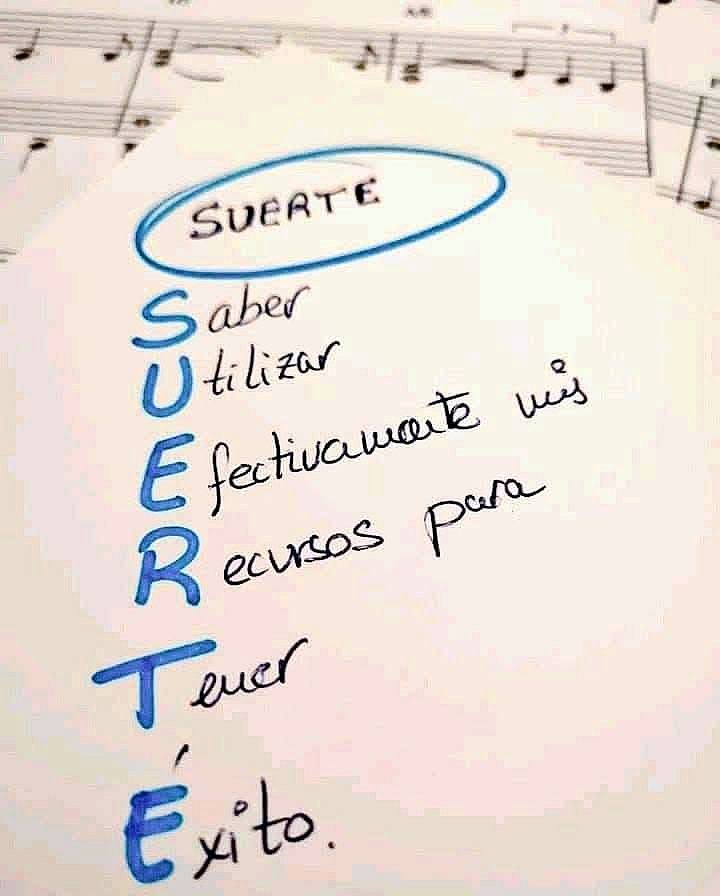 SUERTE
Saber
Utilizar
Efectivamente mis
Recursos para
Tener
Éxito.